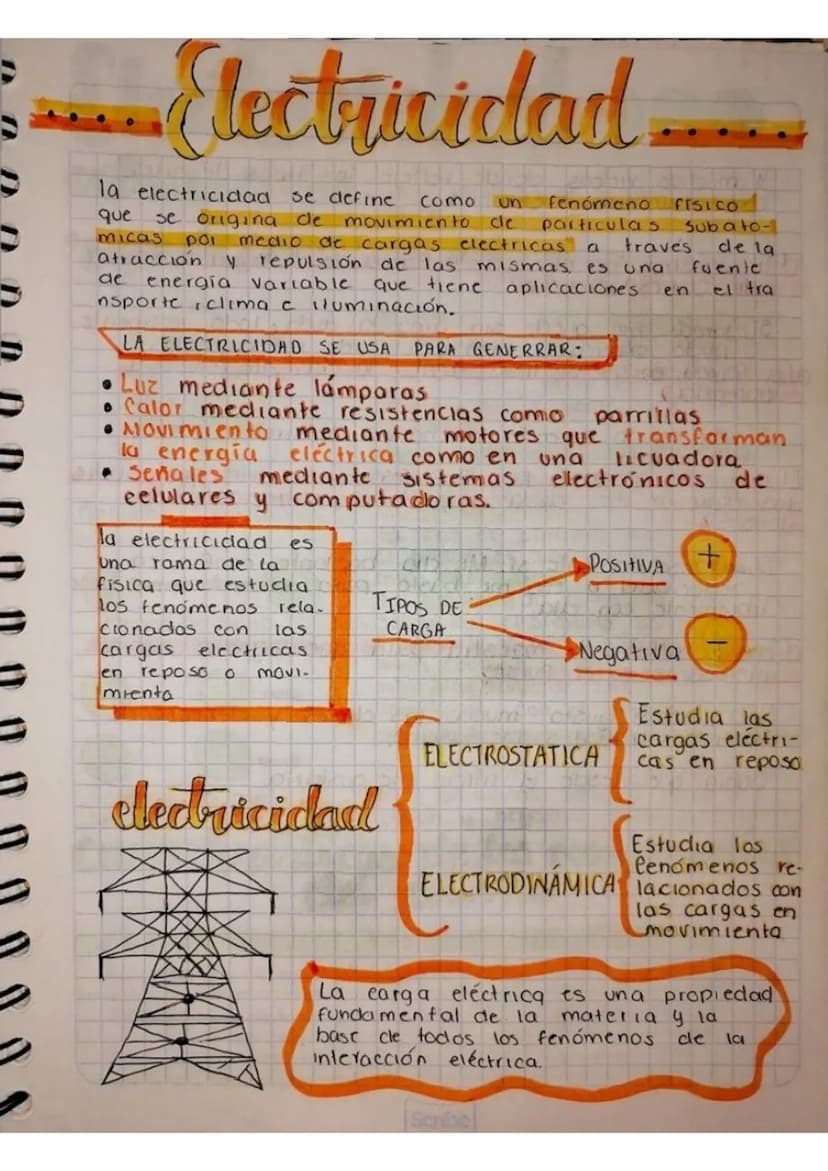 Electricidad
la electricidad se define como un fenómeno físico
que se origina de movimiento de particulas subato-
micas por medio de cargas electricas a través de la
atracción y repulsión de las mismas es una fuente
de energía variable que tiene aplicaciones en el tra
nsporte, clima e iluminación.
LA ELECTRICIDAD SE USA PARA GENERRAR:
• Luz mediante lámparas
• Calor mediante resistencias como parrillas
• Movimiento mediante motores que transforman
la energía eléctrica como en una licuadora
• Señales mediante sistemas electrónicos de
celulares y computadoras.
la electricidad es
una rama de la
física que estudia
los fenómenos rela-
cionados con las
cargas electricas
en reposo o movi-
mienta
TIPOS DE
CARGA
POSITIVA +
Negativa -
electricidad
ELECTROSTATICA
Estudia las
cargas eléctri-
cas en reposo
ELECTRODINÁMICA
Estudia los
fenómenos re-
lacionados con
las cargas en
movimiento
La carga eléctrica es una propiedad
fundamental de la materia y la
base de todos los fenómenos de la
interacción eléctrica.
Scribe